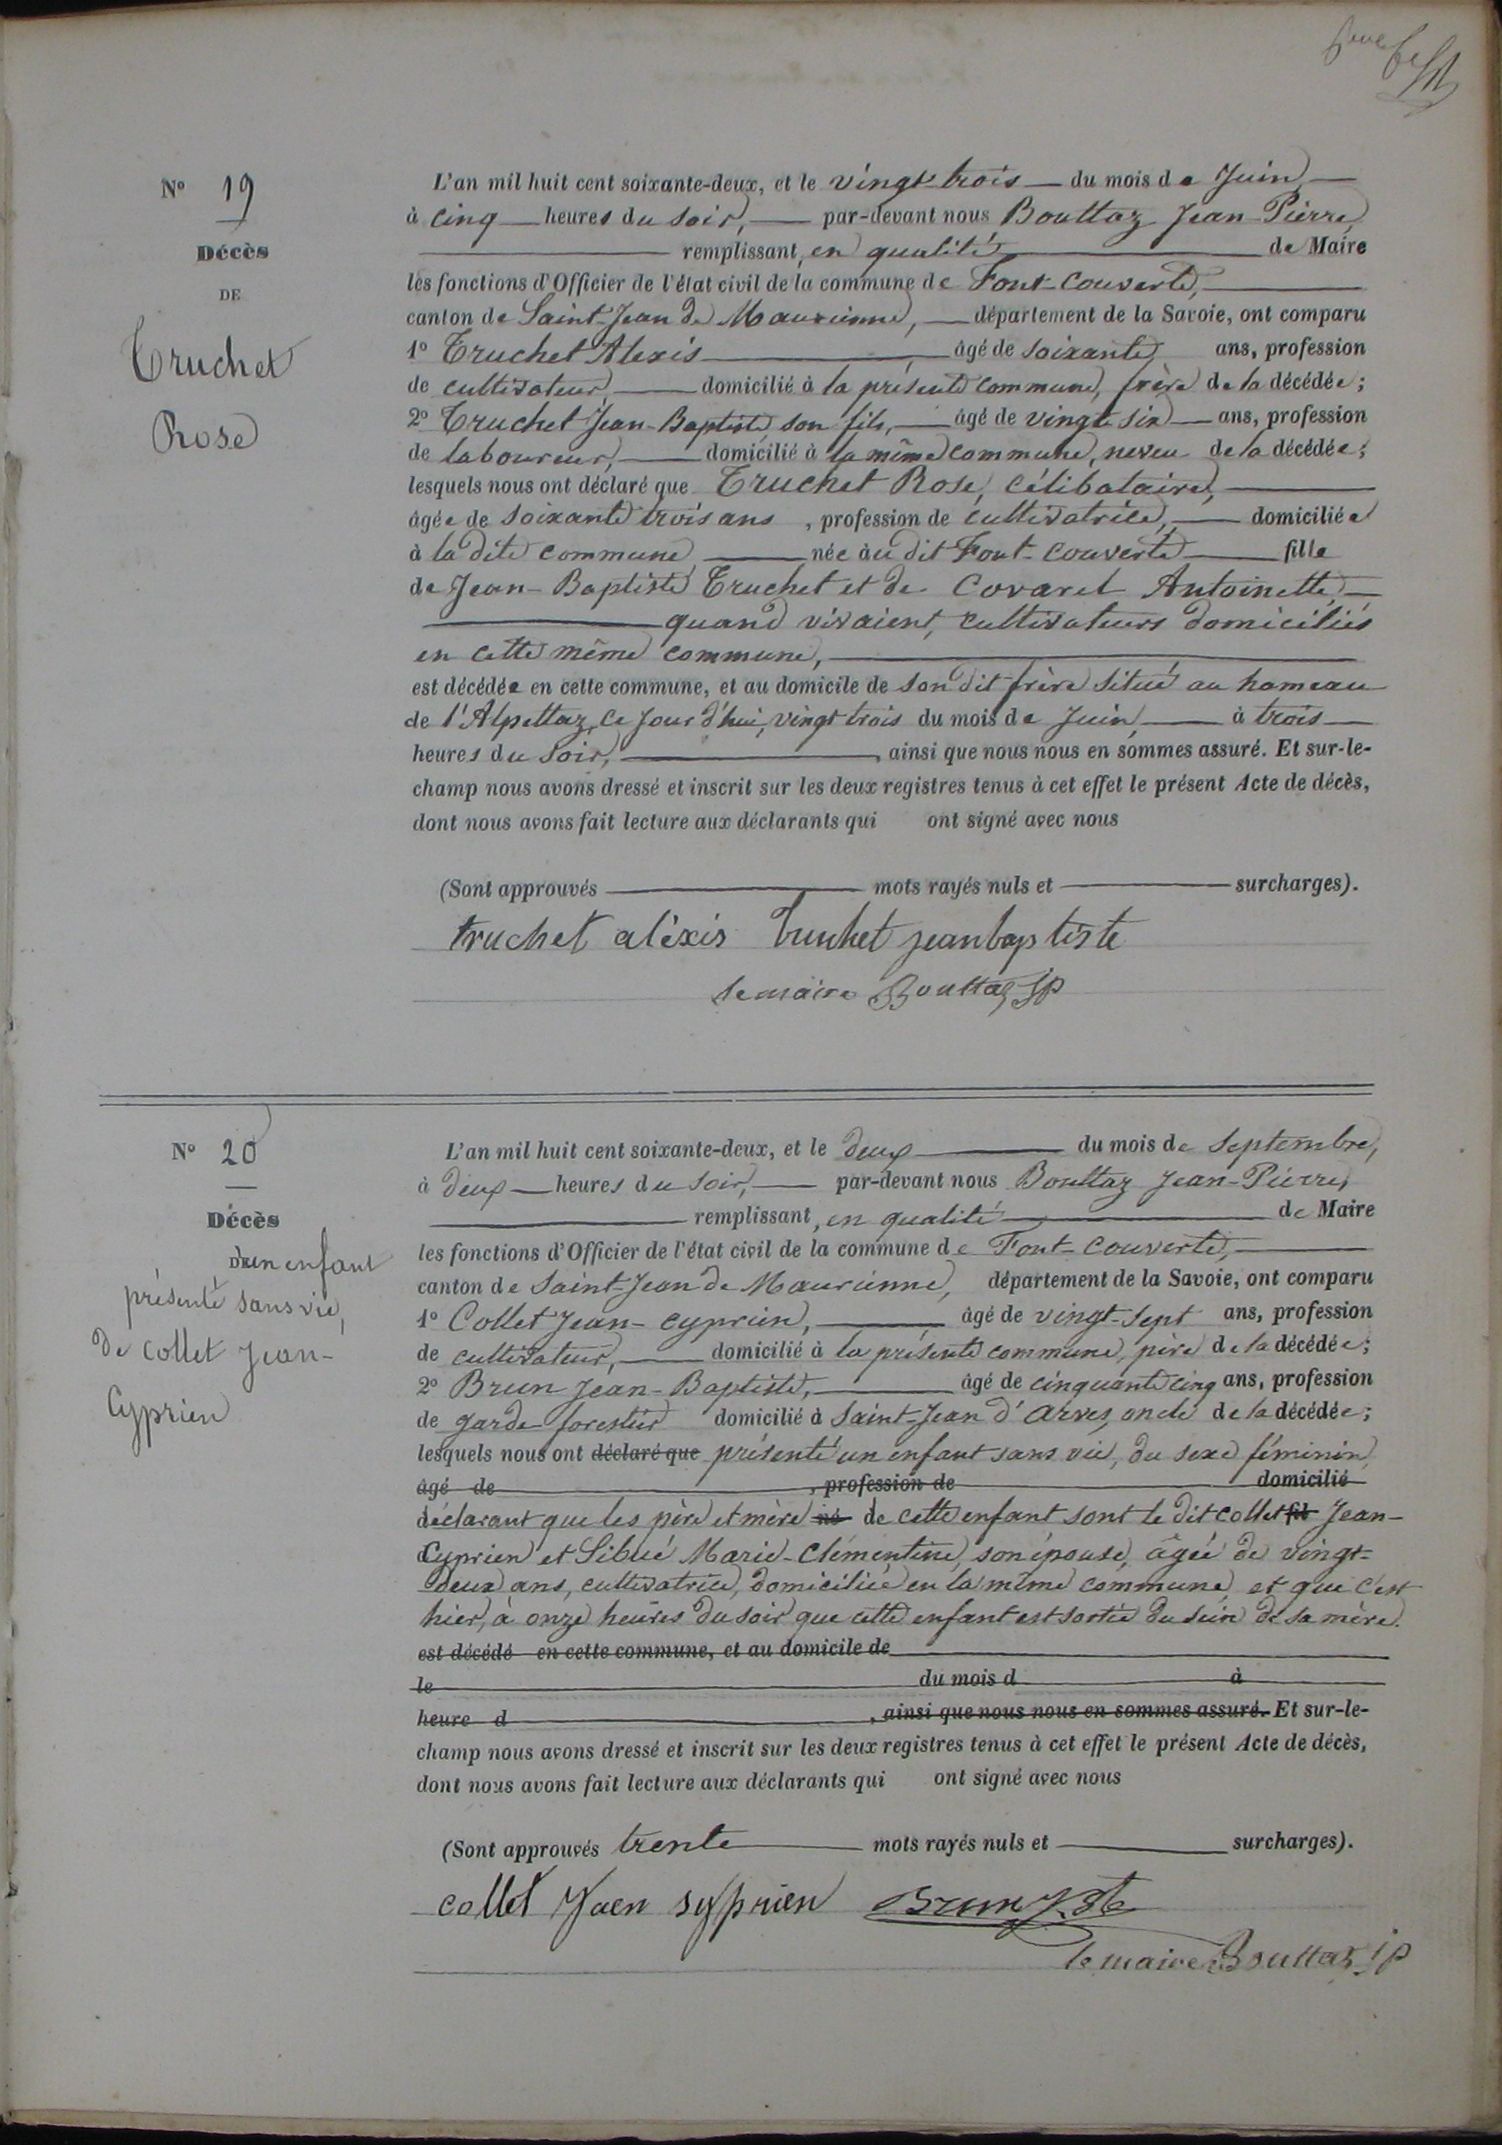 N° 19
Décès
DE
Truchet
Rose
L'an mil huit cent soixante-deux, et le vingt trois du mois de Juin
à cinq heures du soir, par-devant nous Bouttaz Jean-Pierre,
remplissant, en qualité de Maire
les fonctions d'Officier de l'état civil de la commune de Font-couverte,
canton de Saint-Jean de Maurienne, département de la Savoie, ont comparu
1° Truchet Alexis âgé de soixante ans, profession
de cultivateur, domicilié à la présente commune, frère de la décédée;
2° Truchet Jean-Baptiste, son fils, âgé de vingt six ans, profession
de laboureur, domicilié à la même commune, neveu de la décédée;
lesquels nous ont déclaré que Truchet Rose, célibataire,
âgée de soixante trois ans, profession de cultivatrice, domiciliée
à la dite commune née au dit Font-couverte fille
de Jean-Baptiste Truchet et de Covarel Antoinette,
quand vivaient, cultivateurs domiciliés
en cette même commune,
est décédée en cette commune, et au domicile de son dit frère situé au hameau
de l'Alpettaz, ce jour d'hui, vingt trois du mois de Juin, à trois
heures du soir, ainsi que nous nous en sommes assuré. Et sur-le-
champ nous avons dressé et inscrit sur les deux registres tenus à cet effet le présent Acte de décès,
dont nous avons fait lecture aux déclarants qui ont signé avec nous
(Sont approuvés mots rayés nuls et surcharges).
truchet aléxis truchet jean baptiste
le maire Bouttaz jp
N° 20
Décès
d'un enfant
présenté sans vie,
de collet Jean-
Cyprien
L'an mil huit cent soixante-deux, et le deux du mois de septembre,
à deux heures du soir, par-devant nous Bouttaz Jean-Pierre,
remplissant, en qualité de Maire
les fonctions d'Officier de l'état civil de la commune de Font-couverte,
canton de Saint-Jean de Maurienne, département de la Savoie, ont comparu
1° Collet Jean-cyprien, âgé de vingt-sept ans, profession
de cultivateur, domicilié à la présente commune, père de la décédée;
2° Brun Jean-Baptiste, âgé de cinquante cinq ans, profession
de garde forestier domicilié à Saint-Jean d'arves, oncle de la décédée;
lesquels nous ont déclaré que présenté un enfant sans vie, du sexe féminin,
âgé de , profession de domicilié
déclarant que les père et mère né de cette enfant sont le dit collet fil Jean-
Cyprien et Sibué Marie-Clémentine, son épouse, âgée de vingt-
deux ans, cultivatrice, domiciliée en la même commune, et que c'est
hier, à onze heures du soir que cette enfant est sortie du sein de sa mère.
est décédé en cette commune, et au domicile de
le du mois d à
heure d , ainsi que nous nous en sommes assuré. Et sur-le-
champ nous avons dressé et inscrit sur les deux registres tenus à cet effet le présent Acte de décès,
dont nous avons fait lecture aux déclarants qui ont signé avec nous
(Sont approuvés trente mots rayés nuls et surcharges).
collet Jaen syprien Brun J. Bte
le maire Bouttaz jp